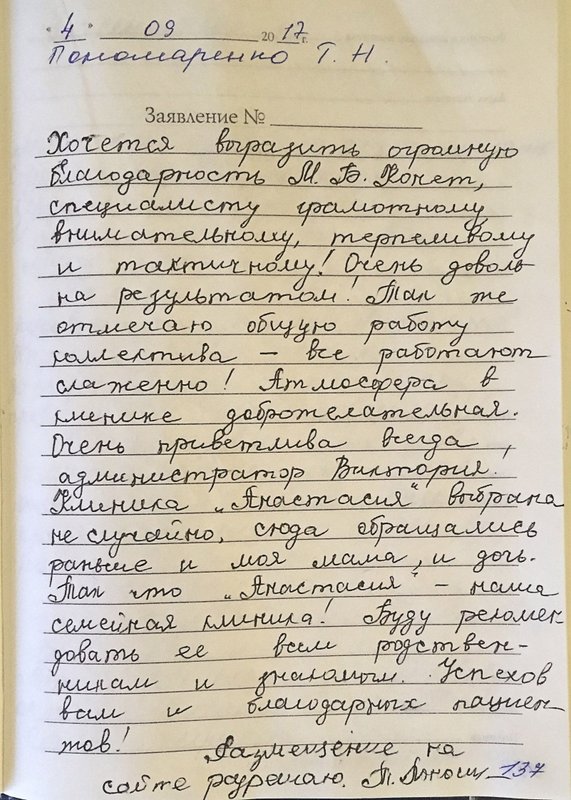 "4" 09 2017 г.
Пономаренко Т. Н.
Заявление №
Хочется выразить огромную
благодарность М. Б. Кочет,
специалисту грамотному,
внимательному, терпеливому
и тактичному! Очень доволь-
на результатом! Так же
отмечаю общую работу
коллектива – все работают
слаженно! Атмосфера в
клинике доброжелательная.
Очень приветлива всегда ,
администратор Виктория.
Клиника „Анастасия“ выбрана
не случайно, сюда обращались
раньше и моя мама, и дочь.
Так что „Анастасия“ – наша
семейная клиника! Буду рекомен
довать ее всем родствен-
никам и знакомым. Успехов
вам и благодарных пациен-
тов!
Размещение на
сайте разрешаю. 137